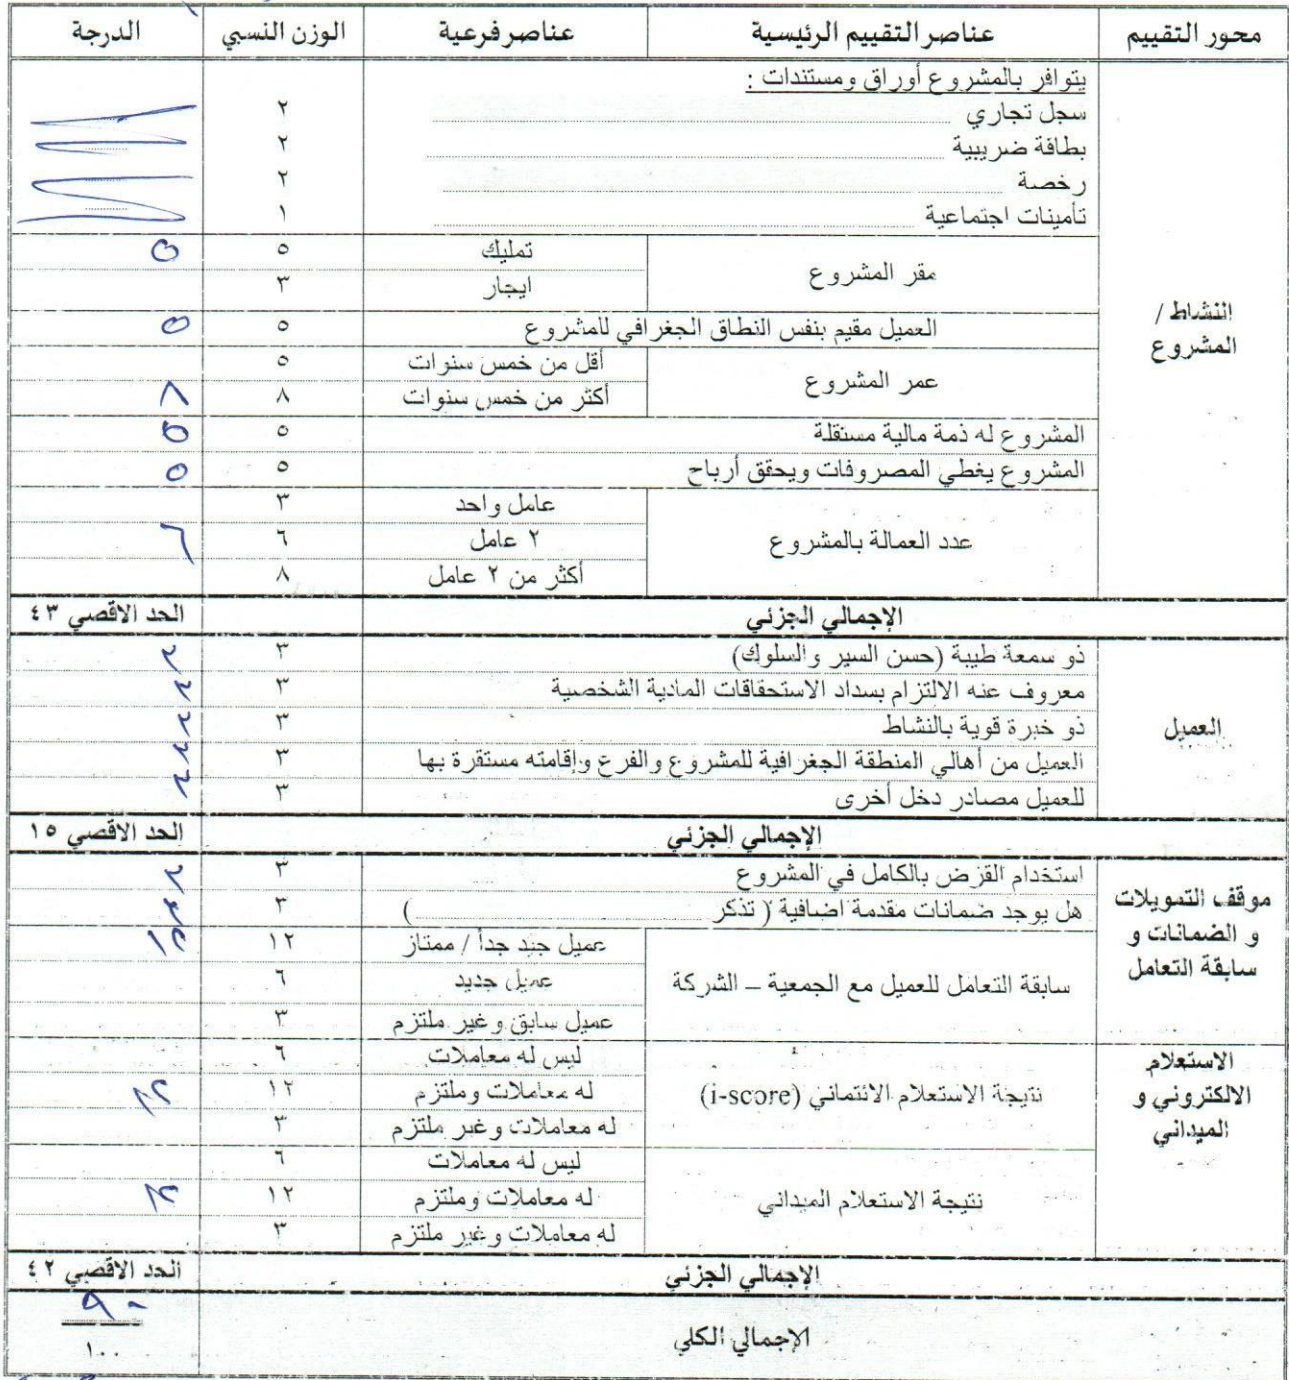 محور التقييم عناصر التقييم الرئيسية عناصر فرعية الوزن النسبي الدرجة
النشاط / المشروع
يتوافر بالمشروع أوراق ومستندات :
سجل تجاري ٢
بطاقة ضريبية ٢
رخصة ٢
تأمينات اجتماعية ١
مقر المشروع
تمليك ٥ ٥
ايجار ٣
العميل مقيم بنفس النطاق الجغرافي للمشروع ٥ ٥
عمر المشروع
أقل من خمس سنوات ٥
أكثر من خمس سنوات ٨ ٨
المشروع له ذمة مالية مستقلة ٥ ٥
المشروع يغطي المصروفات ويحقق أرباح ٥ ٥
عدد العمالة بالمشروع
عامل واحد ٣
٢ عامل ٦ ٦
أكثر من ٢ عامل ٨
الإجمالي الجزئي الحد الاقصي ٤٣
العميل
ذو سمعة طيبة (حسن السير والسلوك) ٣ ٣
معروف عنه الالتزام بسداد الاستحقاقات المادية الشخصية ٣ ٣
ذو خبرة قوية بالنشاط ٣ ٣
العميل من أهالي المنطقة الجغرافية للمشروع والفرع وإقامته مستقرة بها ٣ ٣
للعميل مصادر دخل أخرى ٣ ٣
الإجمالي الجزئي الحد الاقصي ١٥
موقف التمويلات و الضمانات و سابقة التعامل
استخدام القرض بالكامل في المشروع ٣ ٣
هل يوجد ضمانات مقدمة اضافية ( تذكر ) ٣ ٣
سابقة التعامل للعميل مع الجمعية – الشركة
عميل جيد جداً / ممتاز ١٢ ١٢
عميل جديد ٦
عميل سابق وغير ملتزم ٣
الاستعلام الالكتروني و الميداني
نتيجة الاستعلام الائتماني (i-score)
ليس له معاملات ٦
له معاملات وملتزم ١٢ ١٢
له معاملات وغير ملتزم ٣
نتيجة الاستعلام الميداني
ليس له معاملات ٦
له معاملات وملتزم ١٢ ١٢
له معاملات وغير ملتزم ٣
الإجمالي الجزئي الحد الاقصي ٤٢
الإجمالي الكلي ٩٠
١٠٠